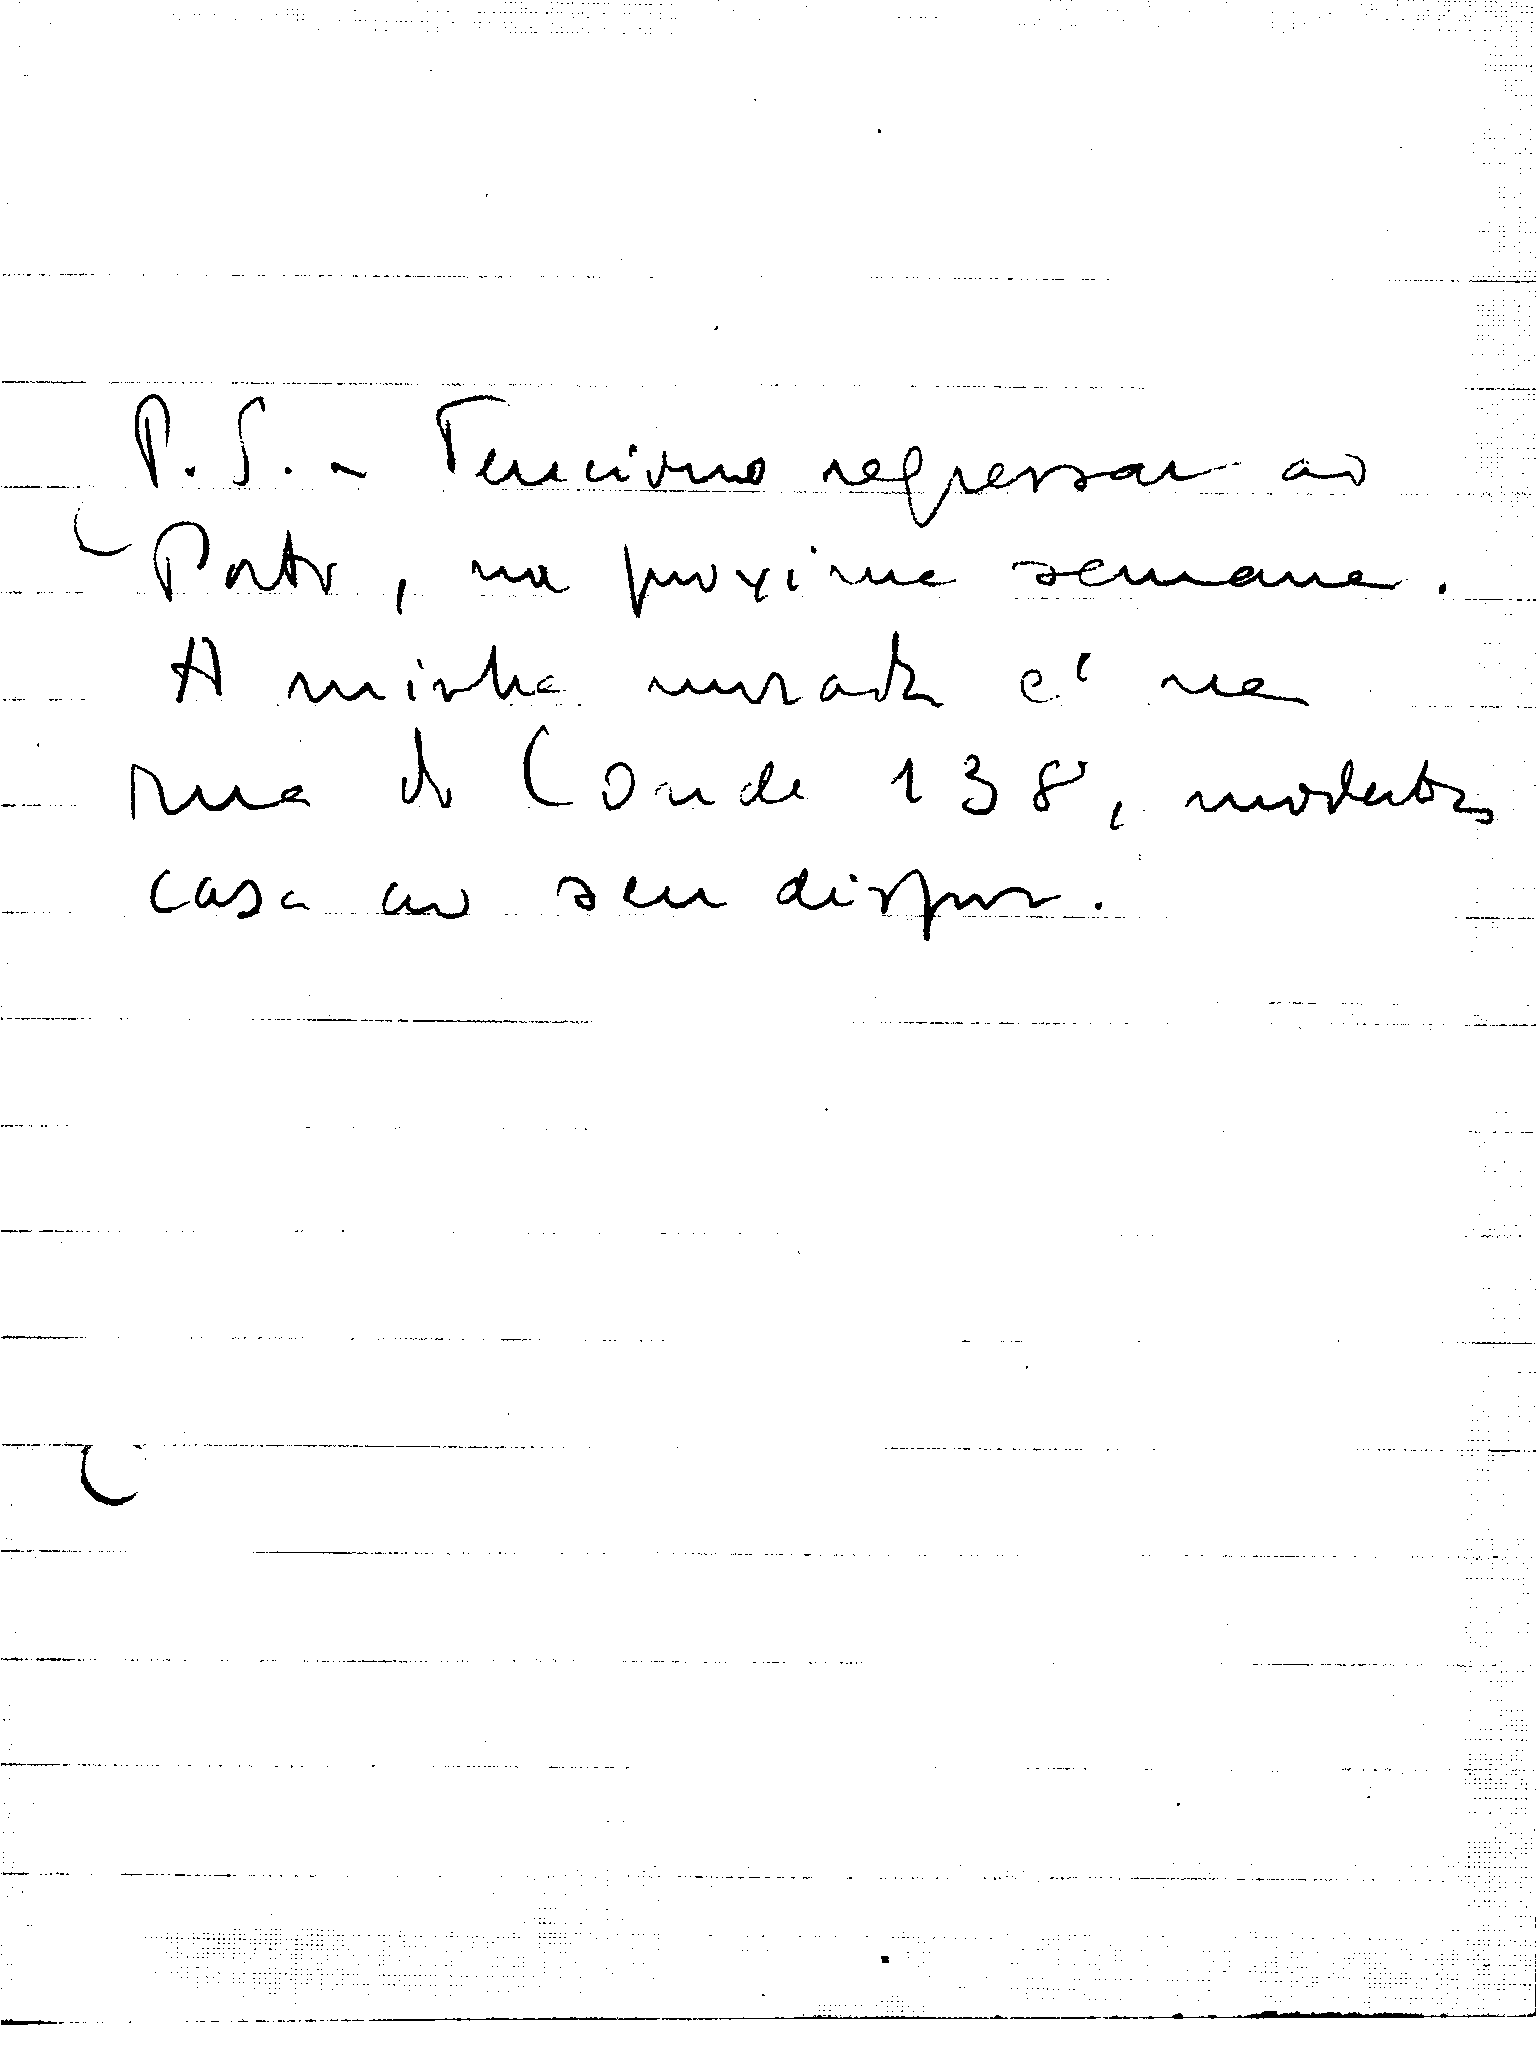 P.S. - Tenciono regressar ao
Porto, na proxima semana.
A minha morada é na
rua do Conde 138, modesta
casa ao seu dispor.